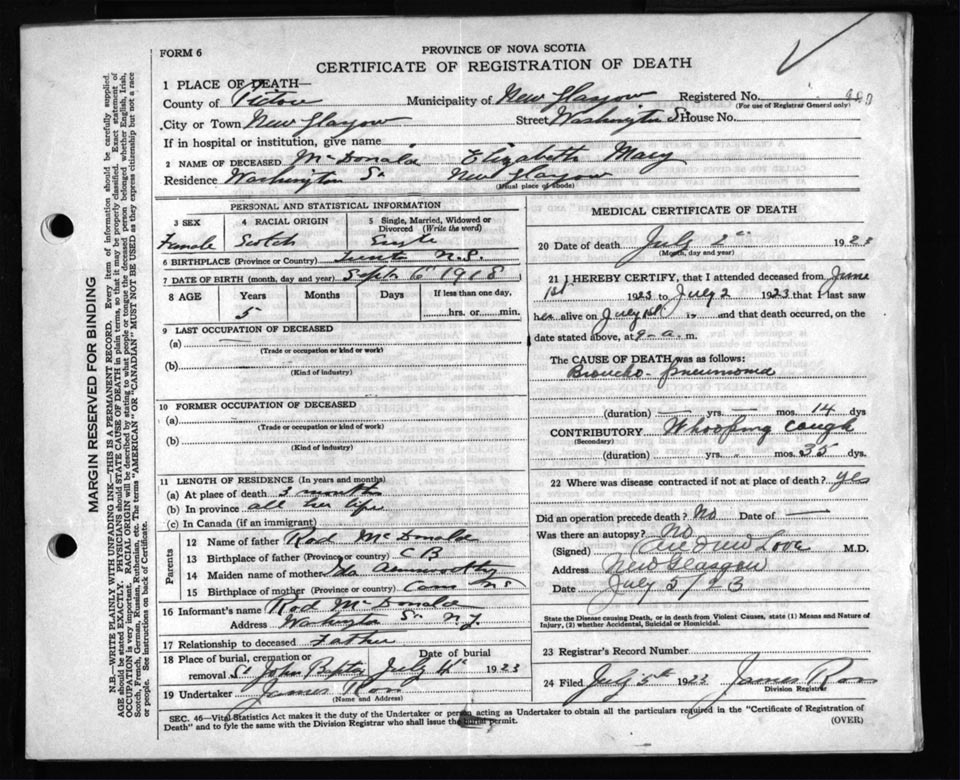 FORM 6
PROVINCE OF NOVA SCOTIA
CERTIFICATE OF REGISTRATION OF DEATH
1 PLACE OF DEATH—
County of Pictou Municipality of New Glasgow Registered No.
(For use of Registrar General only)
City or Town New Glasgow Street Washington St House No.
If in hospital or institution, give name
2 NAME OF DECEASED McDonald Elizabeth Mary
Residence Washington St New Glasgow
(Usual place of abode)
PERSONAL AND STATISTICAL INFORMATION
3 SEX 4 RACIAL ORIGIN 5 Single, Married, Widowed or Divorced (Write the word)
Female Scotch Single
6 BIRTHPLACE (Province or Country) N.S.
7 DATE OF BIRTH (month, day and year) Sept 6th 1918
8 AGE Years Months Days If less than one day,
5 hrs. or min.
9 LAST OCCUPATION OF DECEASED
(a) —
(Trade or occupation or kind or work)
(b)
(Kind of industry)
10 FORMER OCCUPATION OF DECEASED
(a)
(Trade or occupation or kind or work)
(b)
(Kind of industry)
11 LENGTH OF RESIDENCE (In years and months)
(a) At place of death 3 months
(b) In province all her life
(c) In Canada (if an immigrant)
Parents
12 Name of father Rod McDonald
13 Birthplace of father (Province or country) C B
14 Maiden name of mother Ida
15 Birthplace of mother (Province or country) NS
16 Informant's name Rod McDonald
Address Washington St N.G.
17 Relationship to deceased Father
18 Place of burial, cremation or removal St John Baptist Date of burial July 4th 1923
19 Undertaker James Ross
(Name and Address)
MEDICAL CERTIFICATE OF DEATH
20 Date of death July 2nd 1923
(Month, day and year)
21 I HEREBY CERTIFY, that I attended deceased from June
1st 1923 to July 2 1923 that I last saw
her alive on July 1st 19 and that death occurred, on
date stated above, at 9 a. m.
The CAUSE OF DEATH was as follows:
Broncho-pneumonia
(duration) — yrs. — mos. 14 dys
CONTRIBUTORY Whooping Cough
(Secondary)
(duration) yrs. „ mos. 35 dys.
22 Where was disease contracted if not at place of death? yes
Did an operation precede death? No Date of —
Was there an autopsy? No
(Signed) Andrew Love M.D.
Address New Glasgow
Date July 5/23
State the Disease causing Death, or in death from Violent Causes, state (1) Means and Nature of Injury, (2) whether Accidental, Suicidal or Homicidal.
23 Registrar's Record Number
24 Filed July 5th 1923 James Ross
Division Registrar
SEC. 46—Vital Statistics Act makes it the duty of the Undertaker or person acting as Undertaker to obtain all the particulars required in the "Certificate of Registration of
Death" and to fyle the same with the Division Registrar who shall issue the burial permit.
(OVER)
MARGIN RESERVED FOR BINDING
N.B.—WRITE PLAINLY WITH UNFADING INK—THIS IS A PERMANENT RECORD. Every item of information should be carefully supplied.
AGE should be stated EXACTLY. PHYSICIANS should STATE CAUSE OF DEATH in plain terms, so that it may be properly classified. Exact statement of
OCCUPATION is very important. RACIAL ORIGIN will be described by stating to what people or tongue the deceased person belonged whether English, Irish,
Scotch, French, German, Russian, Ruthenian, etc. The terms "AMERICAN" OR "CANADIAN" MUST NOT BE USED as they express citizenship but not a race
or people. See instructions on back of Certificate.